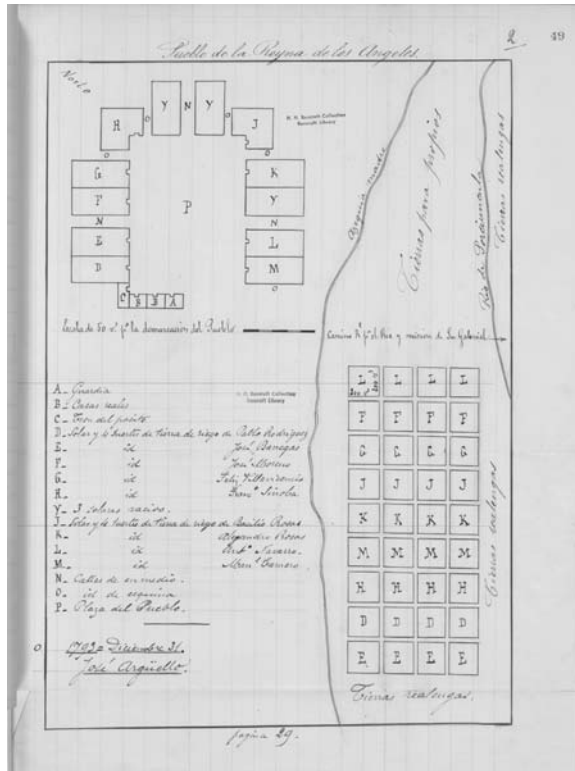 2
49
Pueblo de la Reyna de los Angeles.
Norte
Y N Y
H O O J
H. H. Bancroft Collection
Bancroft Library
O O
G K
F P Y
N N
E L
D M
C B B A O
Escala de 50 v.s p.a la demarcacion del Pueblo
Acequia madre
Tierras para propios
Rio de Porciuncula
Tierras realengas
Camino R.l p.a el Rio y mision de Sn Gabriel
A_ Guardia
B_ Casas reales
C_ Tron del posito
D_ Solar y 4 suertes de tierra de riego de Pablo Rodriguez
E_ id José Banegas
F_ id José Moreno
G_ id Feliz Villavicencio
H_ id Fran.co Sinoba
Y_ 3 solares vacios.
J_ Solar y 4 suertes de tierra de riego de Basilio Rosas
K_ id Alejandro Rosas
L_ id Ant.o Navarro
M_ id Man.l Camero
N_ Calles de en medio.
O_ id de esquina
P_ Plaza del Pueblo.
H. H. Bancroft Collection
Bancroft Library
1793= Diciembre 31.
José Argüello.
L L L L
200 v.s 200 v.s
F F F F
G G G G
J J J J
K K K K
M M M M
H H H H
D D D D
E E E E
Tierras realengas
Tierras realengas.
pagina 29.